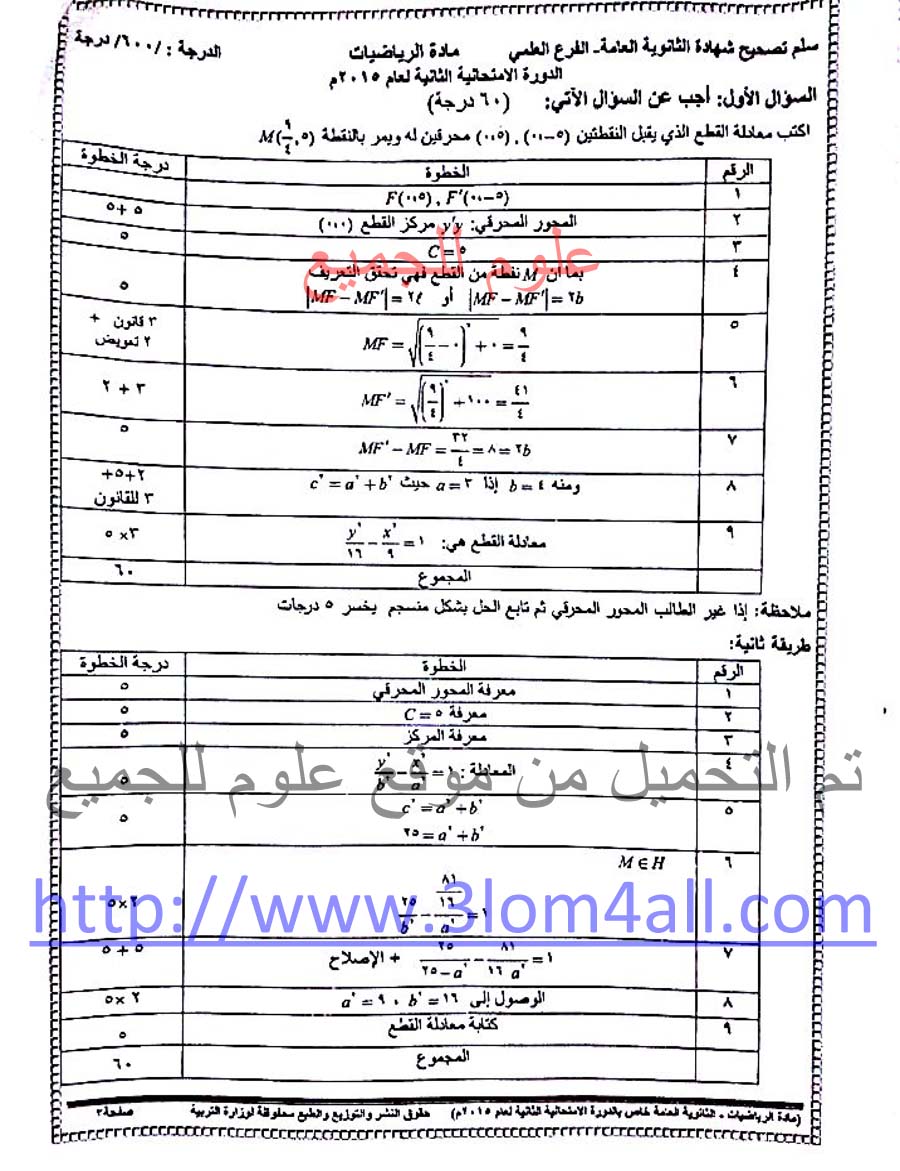 سلم تصحيح شهادة الثانوية العامة- الفرع العلمي مادة الرياضيات الدرجة : /٦٠٠/ درجة
الدورة الامتحانية الثانية لعام ٢٠١٥م
السؤال الأول: أجب عن السؤال الآتي: (٦٠ درجة)
اكتب معادلة القطع الذي يقبل النقطتين (٠،-٥) , (٠،٥) محرقين له ويمر بالنقطة M(٩/٤,٥)
الرقم الخطوة درجة الخطوة
١ F(٠،٥) , F′(٠،-٥)
٢ المحور المحرقي: y′y مركز القطع (٠،٠) ٥+٥
٣ C = ٥ ٥
٤ بما أن M نقطة من القطع فهي تحقق التعريف
|MF − MF′| = ٢b أو |MF − MF′| = ٢٤ ٥
٥ MF = √((٩/٤ − ٠)² + ٠) = ٩/٤ ٣ قانون + ٢ تعويض
٦ MF′ = √((٩/٤)² + ١٠٠) = ٤١/٤ ٣ + ٢
٧ MF′ − MF = ٣٢/٤ = ٨ = ٢b ٥
٨ ومنه b = ٤ إذا a = ٣ حيث c² = a² + b² ٢+٥+ ٣ للقانون
٩ معادلة القطع هي: y²/١٦ − x²/٩ = ١ ٣×٥
المجموع ٦٠
ملاحظة: إذا غير الطالب المحور المحرقي ثم تابع الحل بشكل منسجم يخسر ٥ درجات
طريقة ثانية:
الرقم الخطوة درجة الخطوة
١ معرفة المحور المحرقي ٥
٢ معرفة C = ٥ ٥
٣ معرفة المركز ٥
٤ المعادلة : y²/b² − x²/a² = ١ ٥
٥ c² = a² + b²
٢٥ = a² + b² ٥
٦ M ∈ H
٢٥/b² − (٨١/١٦)/a² = ١ ٥×٢
٧ ٢٥/(٢٥−a²) − ٨١/(١٦ a²) = ١ + الإصلاح ٥ + ٥
٨ الوصول إلى a² = ٩ ، b² = ١٦ ٥× ٢
٩ كتابة معادلة القطع ٥
المجموع ٦٠
(مادة الرياضيات - الثانوية العامة خاص بالدورة الامتحانية الثانية لعام ٢٠١٥م) حقوق النشر والتوزيع والطبع محفوظة لوزارة التربية صفحة٣
علوم للجميع
تم التحميل من موقع علوم للجميع
http://www.3lom4all.com